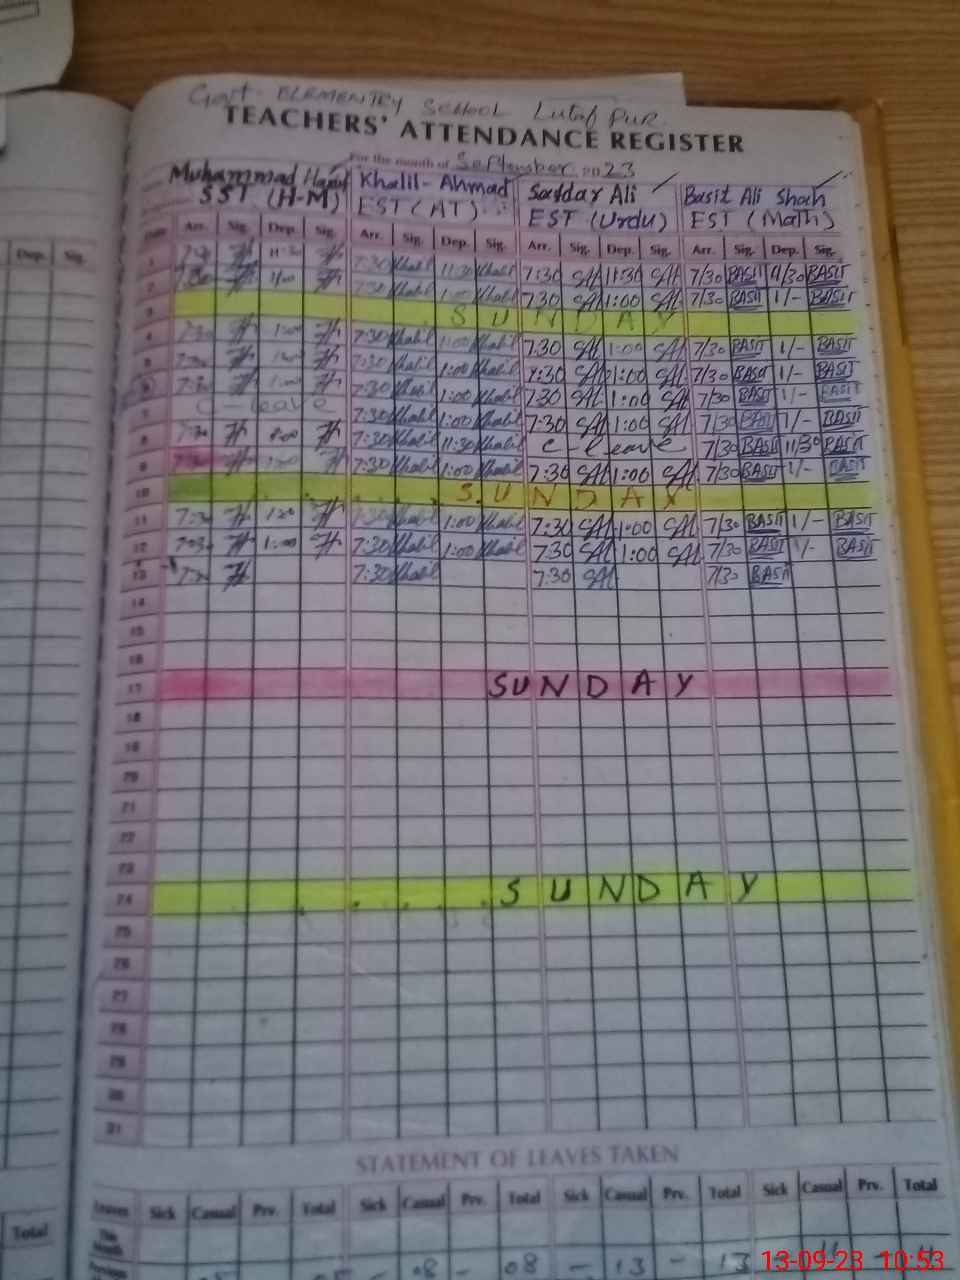 Govt. ELEMENTRY School Lutaf Pur
TEACHERS' ATTENDANCE REGISTER
For the month of September 2023
Muhammad Khalil-Ahmad Safdar Ali Basit Ali Shah
SST (H-M) EST (AT) EST (Urdu) EST (Math)
Dep. Sig. Date Arr. Sig. Dep. Sig. Arr. Sig. Dep. Sig. Arr. Sig. Dep. Sig. Arr. Sig. Dep. Sig.
1 7:30 11:30 7:30 Khalil 11:30 Khalil 7:30 SAl 11:30 SAl 7/30 BASIT 11/30 BASIT
2 7:30 1:00 7:30 Khalil 1:00 Khalil 7:30 SAl 1:00 SAl 7/30 BASIT 1/- BASIT
3 SUNDAY
4 7:30 1:00 7:30 Khalil 1:00 Khalil 7:30 SAl 1:00 SAl 7/30 BASIT 1/- BASIT
5 7:30 1:00 7:30 Khalil 1:00 Khalil 7:30 SAl 1:00 SAl 7/30 BASIT 1/- BASIT
6 7:30 1:00 7:30 Khalil 1:00 Khalil 7:30 SAl 1:00 SAl 7/30 BASIT 1/- BASIT
7 C-leave 7:30 Khalil 1:00 Khalil 7:30 SAl 1:00 SAl 7/30 BASIT 1/- BASIT
8 7:30 7:30 Khalil 11:30 Khalil C-leave 7/30 BASIT 11/30 BASIT
9 7:30 1:00 7:30 Khalil 1:00 Khalil 7:30 SAl 1:00 SAl 7/30 BASIT 1/- BASIT
10 SUNDAY
11 7:30 7:30 Khalil 1:00 Khalil 7:30 SAl 1:00 SAl 7/30 BASIT 1/- BASIT
12 1:00 7:30 Khalil 1:00 Khalil 7:30 SAl 1:00 SAl 7/30 BASIT 1/- BASIT
13 7:30 7:30 Khalil 7:30 SAl 7/30 BASIT
14
15
16
17 SUNDAY
18
19
20
21
22
23
24 SUNDAY
25
26
27
28
29
30
31
STATEMENT OF LEAVES TAKEN
Total Leaves Sick Casual Prv. Total Sick Casual Prv. Total Sick Casual Prv. Total Sick Casual Prv. Total
This Month
Previous 08 - 08 - 13 - 13
13-09-23 10:53